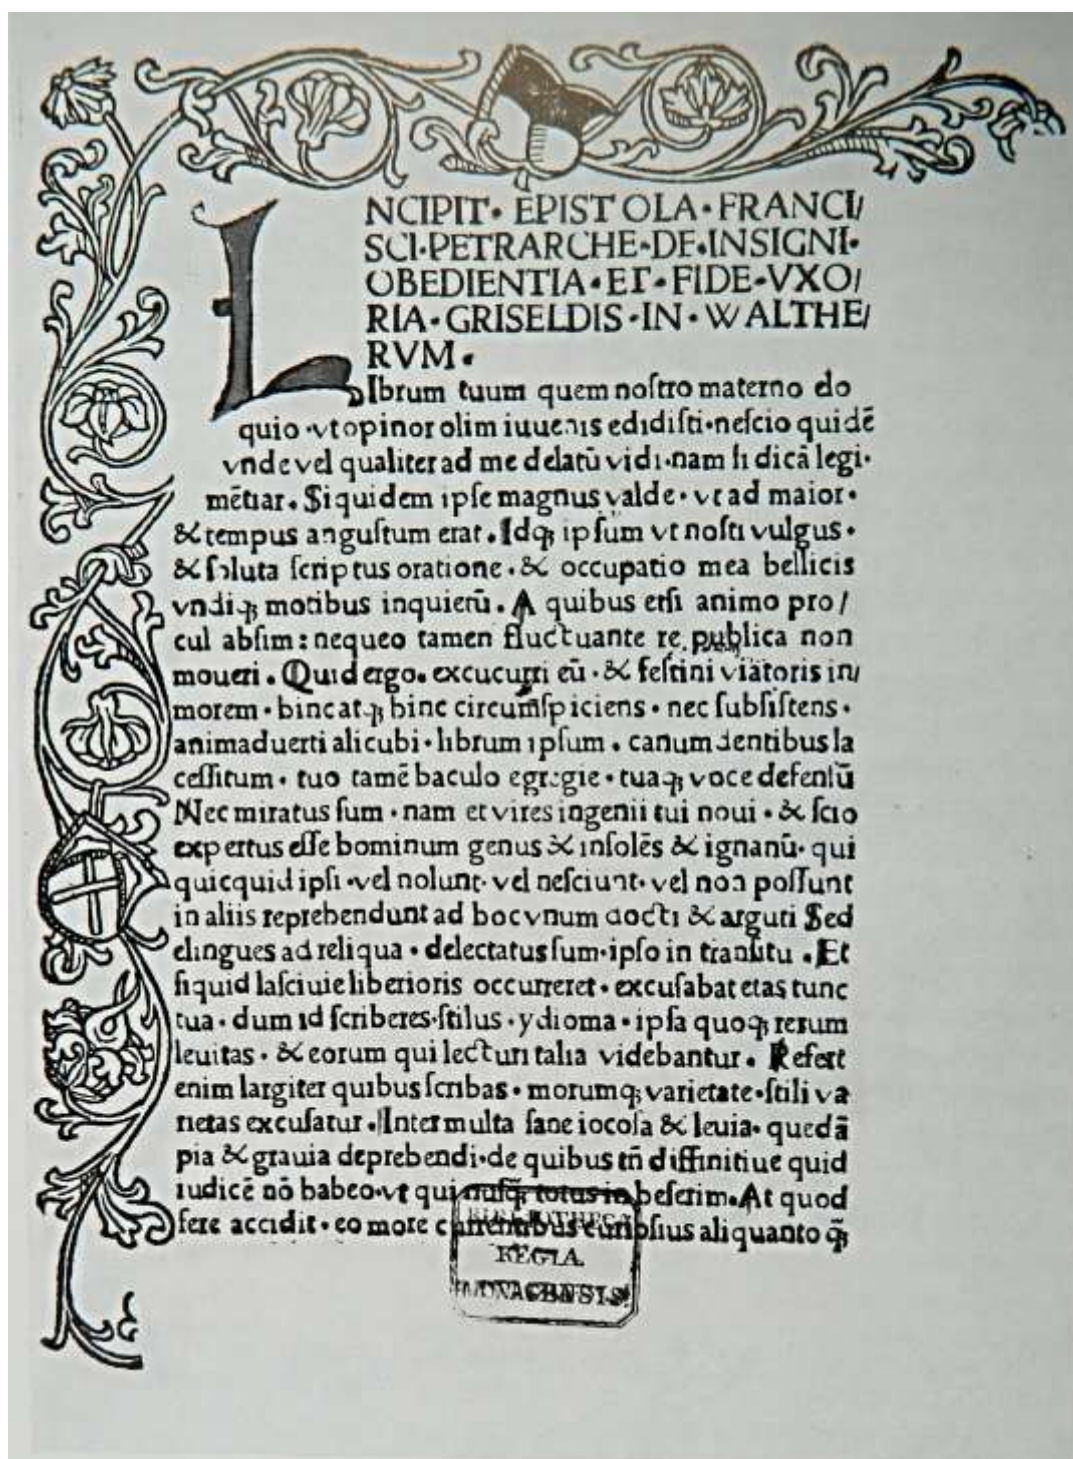 NCIPIT· EPISTOLA·FRANCI/
SCI·PETRARCHE·DE·INSIGNI·
OBEDIENTIA·ET·FIDE·VXO/
RIA·GRISELDIS·IN·WALTHE/
RVM·
LIbrum tuum quem noſtro materno elo
quio ·vt opinor olim iuuenis edidiſti·neſcio quidē
vnde vel qualiter ad me delatū vidi·nam ſi dicā legi·
mētiar. Siquidem ipſe magnus valde· vt ad maior·
& tempus anguſtum erat. Idqꝫ ipſum vt noſti vulgus·
& ſoluta ſcriptus oratione·& occupatio mea bellicis
vndiqꝫ motibus inquietū. A quibus etſi animo pro/
cul abſim: nequeo tamen fluctuante re publica non
moueri. Quid ergo. excucurri eū·& feſtini viatoris in/
morem·hincatqꝫ hinc circumſpiciens·nec ſubſiſtens·
animaduerti alicubi·librum ipſum. canum dentibus la
ceſſitum·tuo tamē baculo egregie·tuaqꝫ voce defenſū
Nec miratus ſum·nam et vires ingenii tui noui·& ſcio
expertus eſſe hominum genus & inſolēs & ignauū·qui
quicquid ipſi·vel nolunt·vel neſciunt·vel non poſſunt
in aliis reprehendunt ad hoc vnum docti & arguti Sed
elingues ad reliqua·delectatus ſum·ipſo in tranſitu. Et
ſiquid laſciuie liberioris occurreret·excuſabat etas tunc
tua·dum id ſcriberes·ſtilus·ydioma·ipſa quoqꝫ rerum
leuitas·& eorum qui lecturi talia videbantur. Refert
enim largiter quibus ſcribas·morumqꝫ varietate·ſtili va
rietas excuſatur. Inter multa ſane iocoſa & leuia·quedā
pia & grauia deprehendi·de quibus tn̄ diffinitiue quid
iudicē nō habeo·vt qui nuſqꝫ totus in heſerim. At quod
fere accidit·eo more currentibus curioſius aliquanto qꝫ
BIBLIOTHECA
REGIA
MONACENSIS.